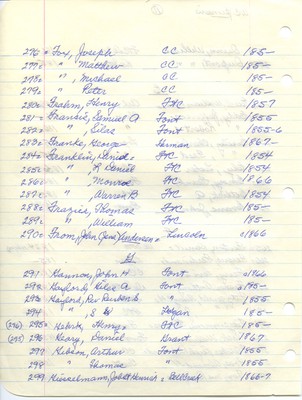 276 Fox, Joseph CC 185-
277 " Matthew CC 185-
278 " Michael CC 185-
279 " Peter CC 185-
280 Frahm, Henry FtC 1857
281 Francis, Samuel A Font 1855
282 " Silas Font 1855-6
283 Franke, George Herman 1867
284 Franklin, Daniel FtC 1854
285 " R Daniel FtC 1854
286 " Monroe FtC 1866
287 " Warren B FtC 1854
288 Frazier, Thomas FtC 185-
289 " William FtC 185-
290 From, John (Jens) Anderson Lincoln 1866
291 Hannon, John H Font 1866
292 Hayford, Silas A Font 185-
293 Hayford, Rev Reuben " 1855
294 " S W Logan 185-
(296) 295 Henry FtC 185-
(295) 296 Daniel Grant 1867
297 Arthur Font 1855
298 " Thomas " 1855
299 1866-7